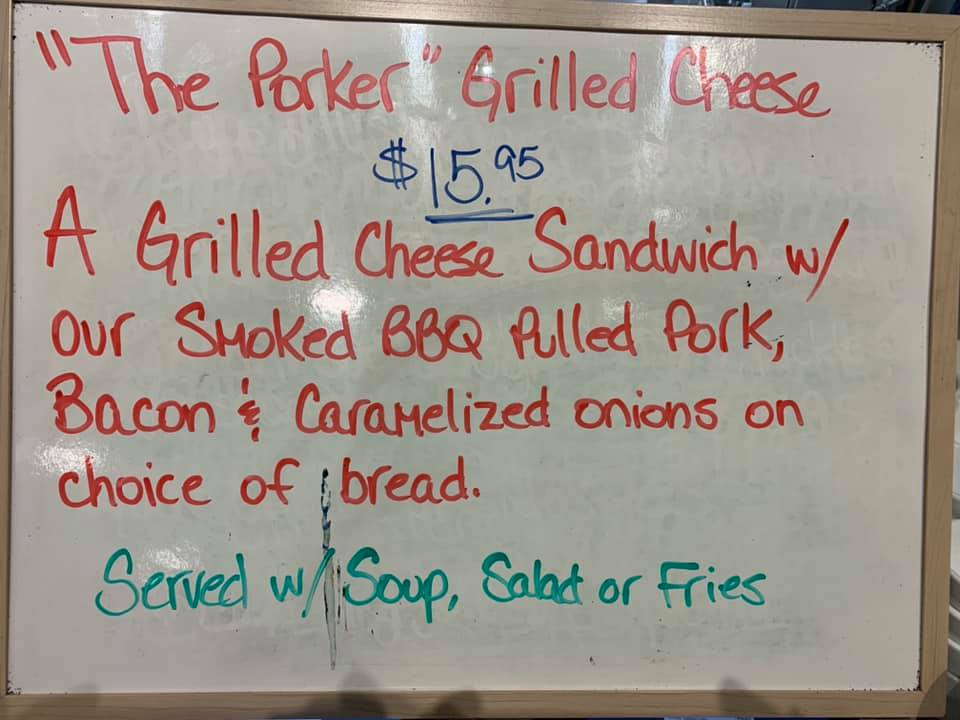 "The Porker" Grilled Cheese
$15.95
A Grilled Cheese Sandwich w/
our Smoked BBQ Pulled Pork,
Bacon & Caramelized onions on
choice of bread.
Served w/ Soup, Salad or Fries